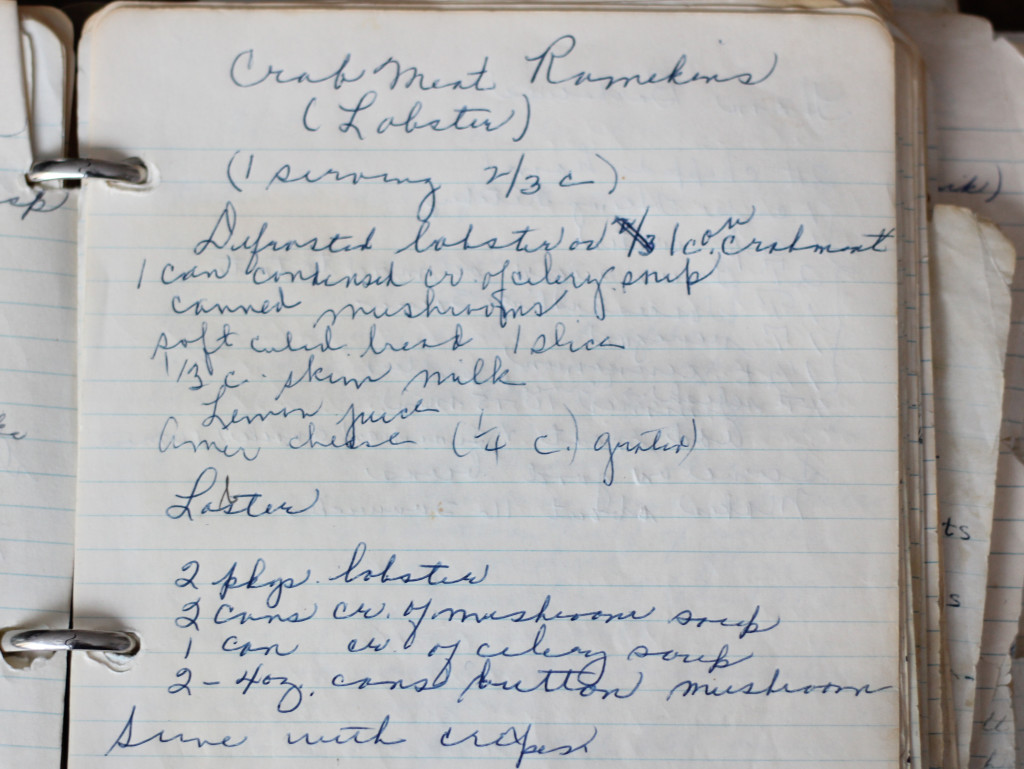 Crab Meat Ramekins
(Lobster)
(1 serving 2/3 c)
Defrosted lobster or 1 can crabmeat
1 can condensed cr. of celery soup
canned mushrooms
soft cubed bread 1 slice
1/3 c. skim milk
Lemon juice
Amer cheese (1/4 c.) grated)
Lobster
2 pkgs. lobster
2 cans cr. of mushroom soup
1 can cr. of celery soup
2 - 4oz. cans button mushroom
Serve with crepes
sp
ts
s